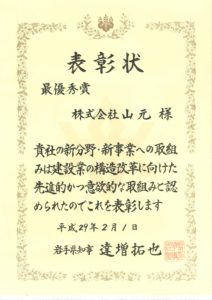 表彰状
最優秀賞
株式会社山元 様
貴社の新分野・新事業への取組
みは建設業の構造改革に向けた
先進的かつ意欲的な取組みと認
められたのでこれを表彰します
平成29年2月1日
岩手県知事 達増拓也